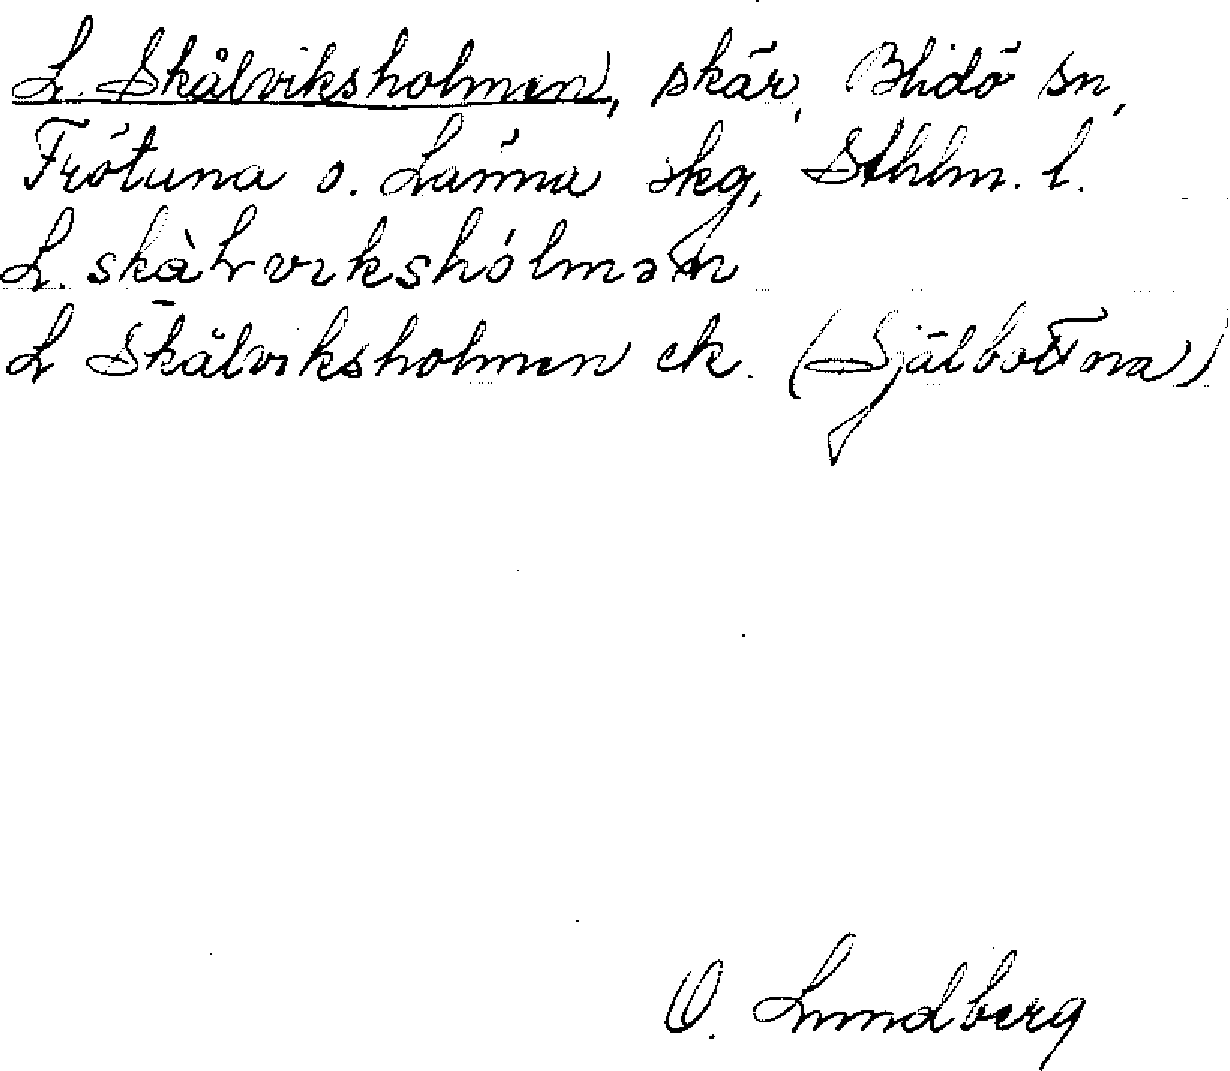 L. Skålviksholmen, skär, Blidö sn,
Frötuna o. Länna skg, Sthlm. l.
L. skàlvıkshólmən
L Skålviksholmen ek. (Själbottna)
O. Lundberg